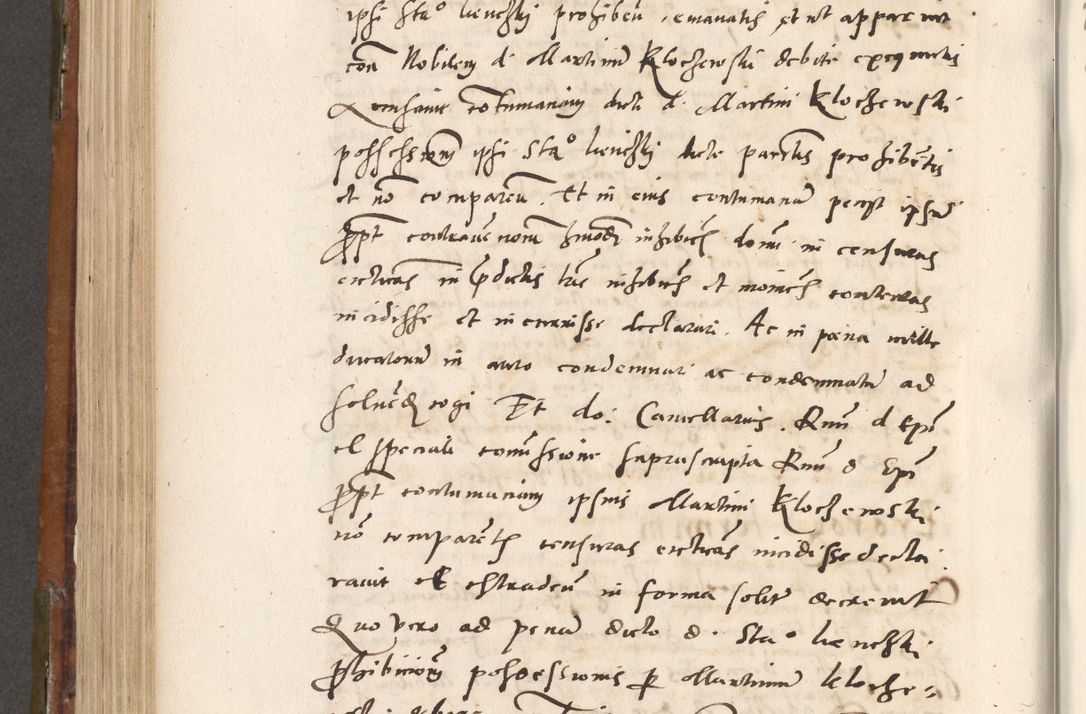 ipsi Stao lienchki prohiben. emanatis et ut apparuit
con Nobilem d. Martinum Klochewski debite exequutis
contumaciam dicti d. Martini Klochewski
possessionem ipsi Stao lienchki dicte partis prohibentis
et non comparen. Et in eius contumaciam petijt ipsum
ppt contravencionem hmoi inhibicionis domini in censuras
ecclicas in predictis litteris inhibicionis et monicionis contentas
incidisse et incurrisse declarari. Ac in pena mille
ducatorum in auro condemnari ac condemnatum ad
solvendum cogi Et do: Cancellarius. Rmi d Epi
et speciali commissione suprascripta Rmi d Epi
ppt contumaciam ipsius Martini Klochewski
non comparentis censuras ecclicas incidisse decla
ravit et extradendum in forma solita decrevit
Quo vero ad penam dicto d. Stao lienchki
prohibicionem possessionis per Martinum kloche=